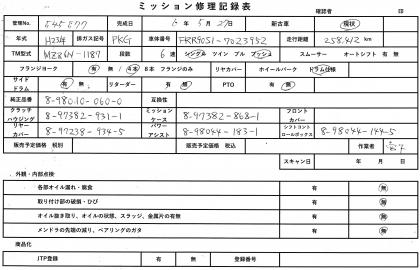 ミッション修理記録表
確認者 印
管理No. E45E77 完成日 6年 5月 27日 新古車 現状
年式 H23年 排ガス記号 PKG 車体番号 FRR90S1-7023952 走行距離 258.412 km
TM型式 MZZ6W-1187 段数 6速 シングル ツイン プル プッシュ スムーサー オートシフト 有 無
フランジヨーク 有 無 / 4本 8本 フランジのみ リヤカバー ホイールパーク ドラム仕様
サイドドラム 有 無 リターダー 有 無 PTO 有 無
純正品番 8-98010-060-0 互換性
クラッチハウジング 8-97382-931-1 ミッションケース 8-97382-868-1 フロントカバー
リヤーカバー 8-97238-934-5 パワーアシスト 8-98044-183-1 シフトコントロールボックス 8-98044-144-5
販売予定価格 税別 販売予定価格 税込 作業者
スキャン日 年 月 日
・外観・内部点検
各部オイル漏れ・腐食 有 無
取り付け部の破損・ひび 有 無
オイル抜き取り、オイルの状態、スラッジ、金属片の有無 有 無
メンドラの先端の減り、ベアリングのガタ 有 無
・商品化
JTP登録 有 無 登録日 年 月 日